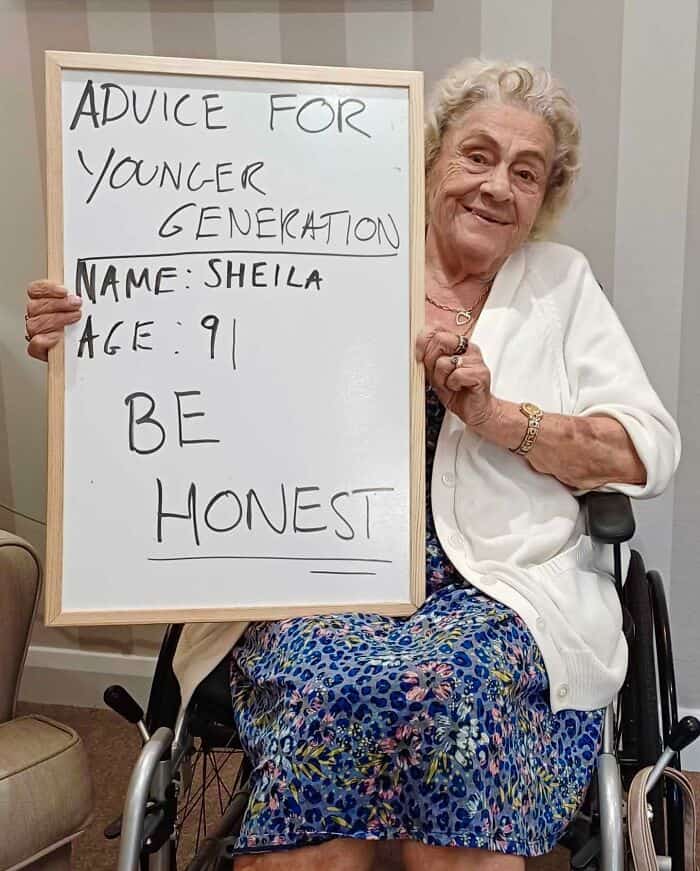 ADVICE FOR
YOUNGER
GENERATION
NAME: SHEILA
AGE: 91
BE
HONEST